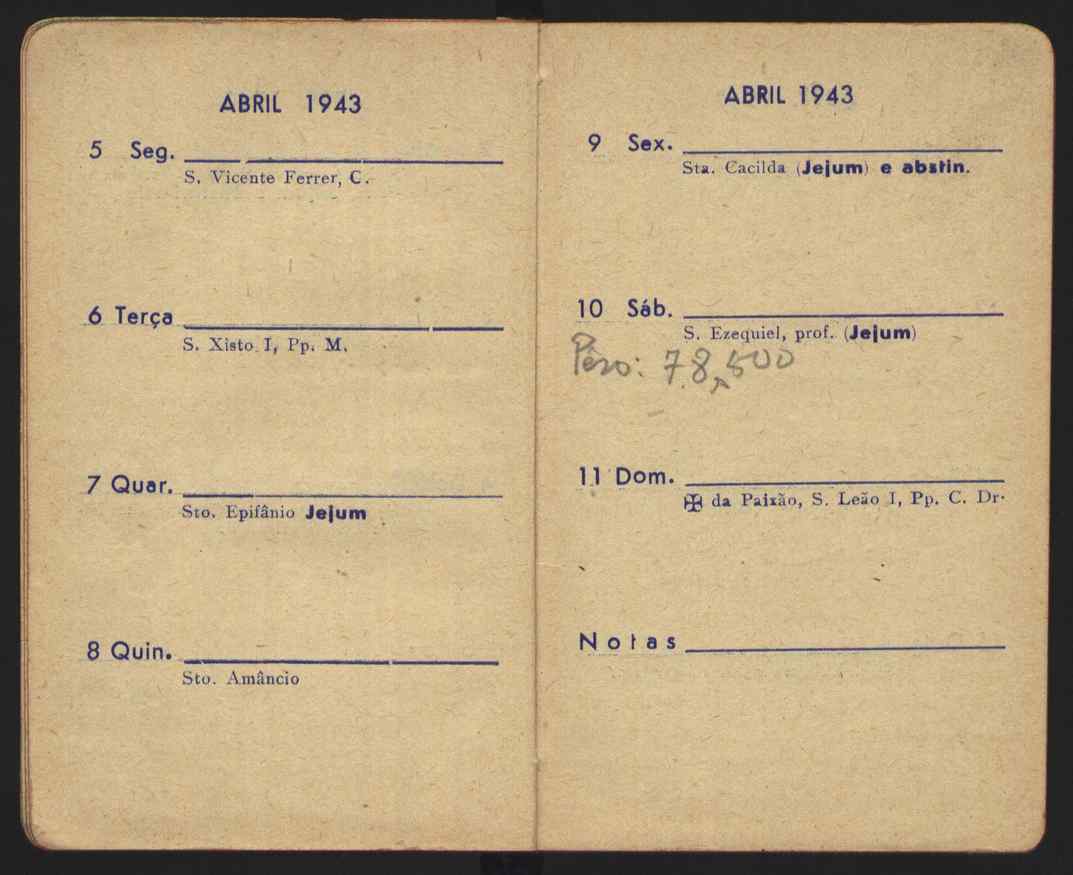 ABRIL 1943
5 Seg.
S. Vicente Ferrer, C.
6 Terça
S. Xisto I, Pp. M.
7 Quar.
Sto. Epifânio Jejum
8 Quin.
Sto. Amâncio
ABRIL 1943
9 Sex.
Sta. Cacilda (Jejum) e abstin.
10 Sáb.
S. Ezequiel, prof. (Jejum)
Pêso: 78,500
11 Dom.
✠ da Paixão, S. Leão I, Pp. C. Dr.
Notas